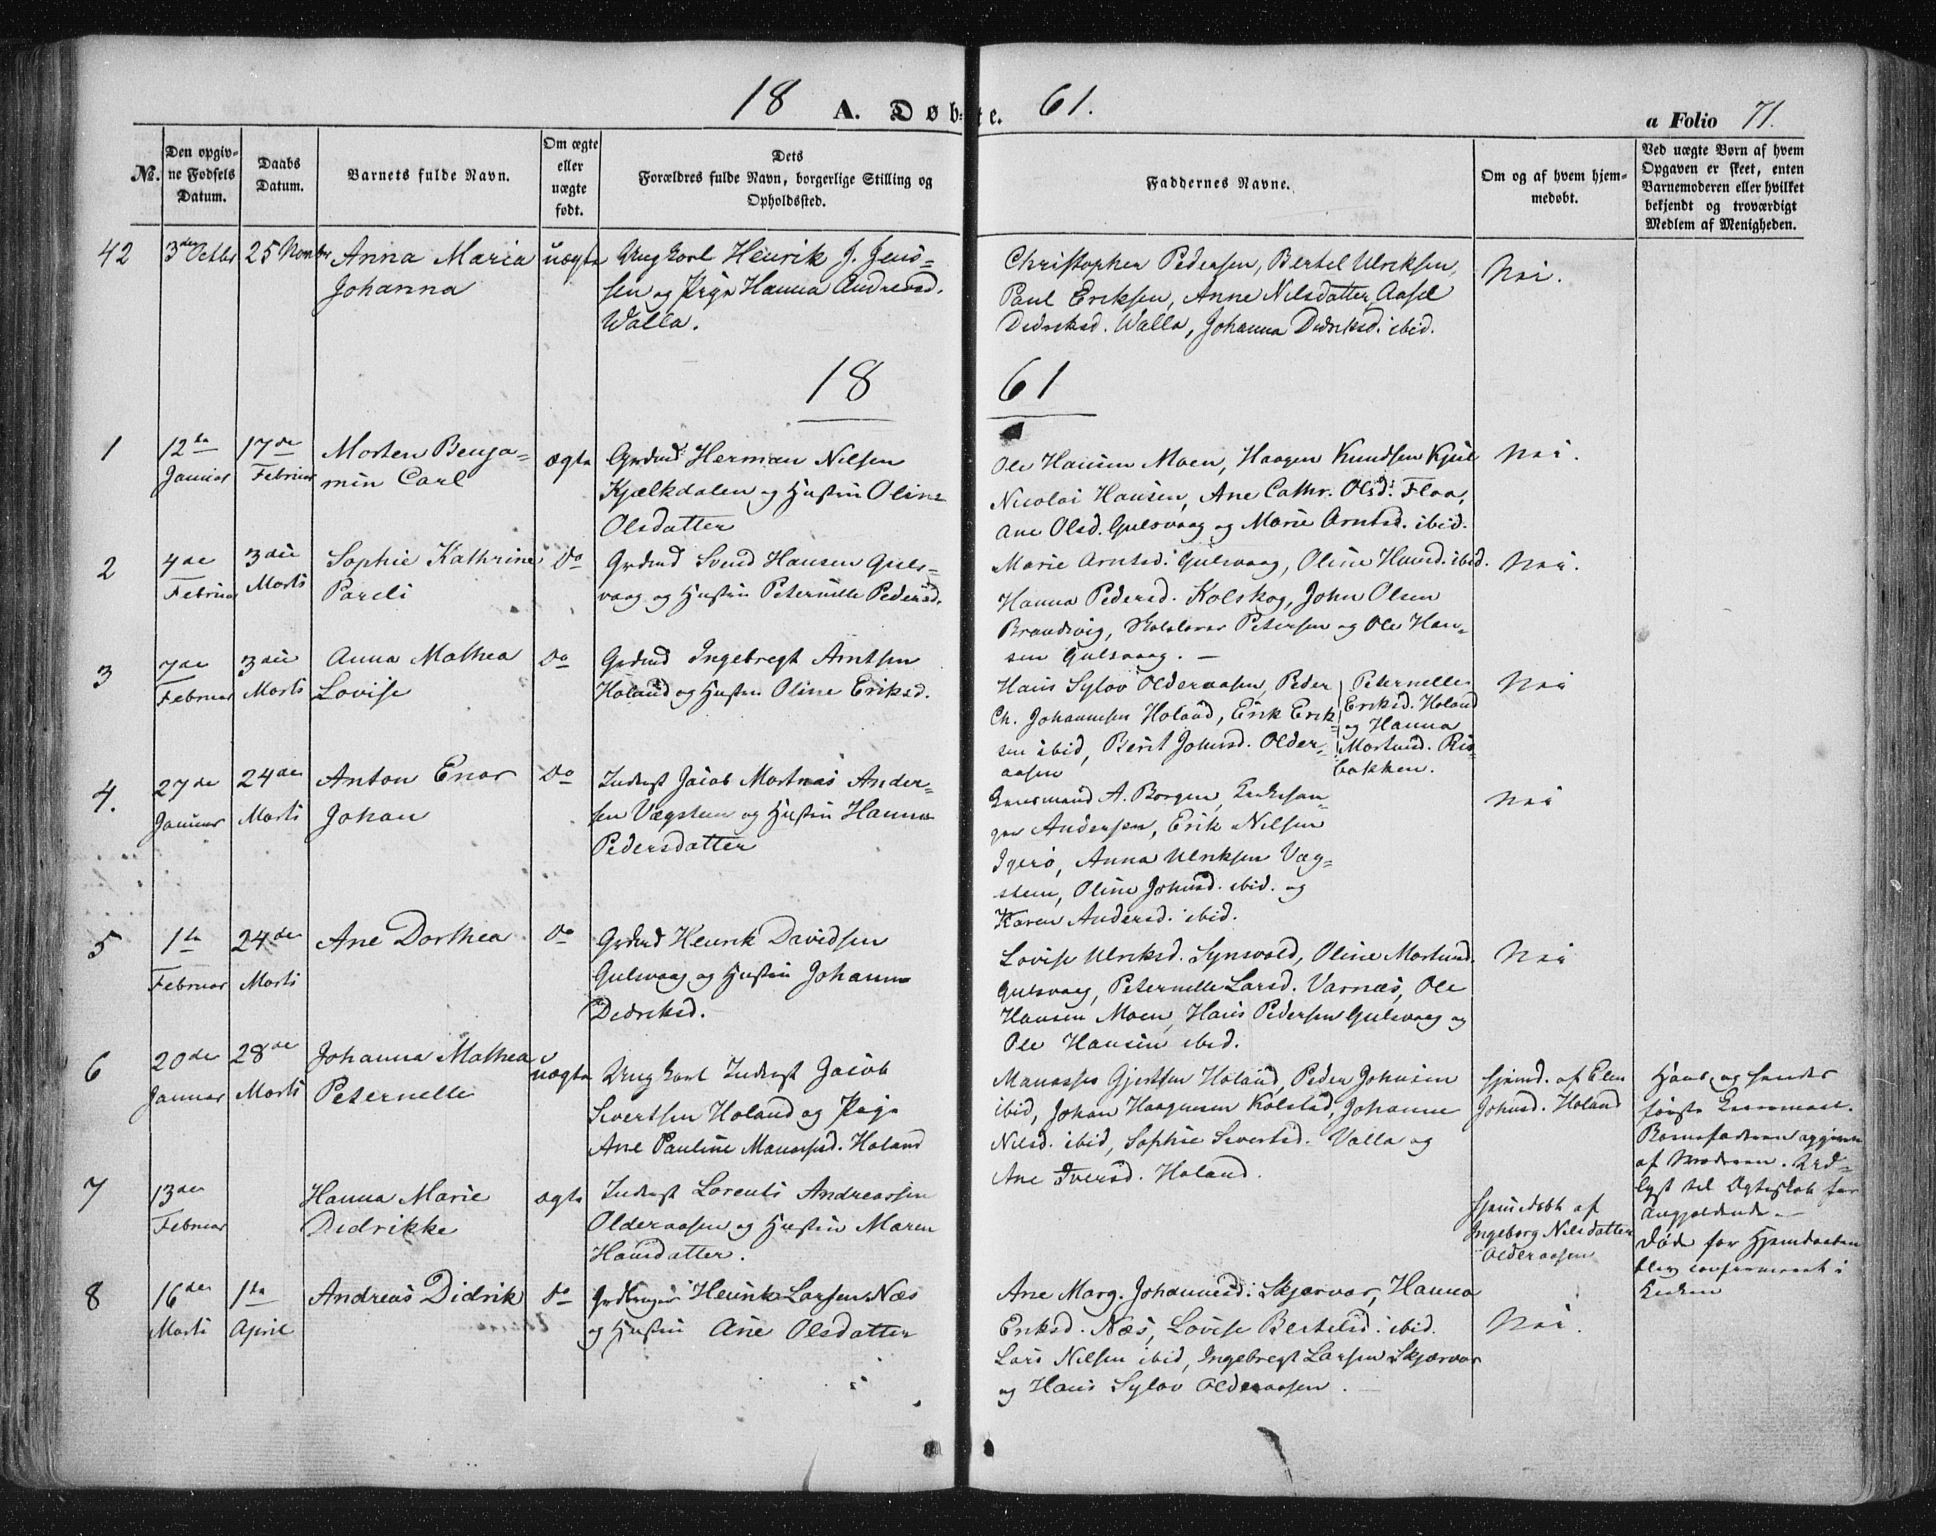 18 A. Døbte. 61.
a Folio 71.
No.
Den opgiv-
ne Fødsels
Datum.
Daabs
Datum.
Barnets fulde Navn.
Om ægte
eller
uægte
født.
Dets
Forældres fulde Navn, borgerlige Stilling og
Opholdssted.
Faddernes Navne.
Om og af hvem hjem-
medøbt.
Ved uægte Børn af hvem
Opgaven er skeet, enten
Barnemoderen eller hvilket
bekjendt og troværdigt
Medlem af Menigheden.
42 3die Octbr 25 Novmbr Anna Maria
Johanna
uægte
Ungkarl Henrik J. Jens-
sen og Pige Hanna Andreasd.
Walla.
Christopher Pedersen, Bertel Ulriksen,
Paul Eriksen, Anne Nilsdatter, Aasel
Didriksd. Walla, Johanna Didriksd. ibid.
Nei.
18 61
1 12te
Januar
17de
Februar
Morten Benja-
min Carl
ægte
Grdmd Herman Nilsen
Kjelkdalen og Hustru Oline
Olsdatter
Ole Hansen Moen, Haagen Knudsen Kjul
Nicolai Hansen, Ane Cathr. Olsd. Floa,
Ane Olsd. Gulsvaag og Marie Arntsd. ibid.
Nei.
2 4de
Februar
3die
Marts
Sophie Kathrine
Pareli
Do
Grdmd Svend Hansen Guls-
vaag og Hustru Peternille Pedersd.
Marie Arntsd. Gulsvaag, Oline Hansd. ibid.
Hanna Pedersd. Kolskog, John Olsen
Brandsvig, Petersen og Ole Han-
sen Gulsvaag. —
Nei.
3 7de
Februar
3die
Marts
Anna Mathea
Lovise
Do
Grdmd Ingebregt Arntsen
Holand og Hustru Oline Eriksd.
Hans Sylov Olderaasen, Peder
Ch. Johannesen Holand, Erik Erik-
sen ibid, Berit Johnsd. Older-
aasen
Peternelle
Eriksd. Holand
og Hanna
Mortensd. Ris-
bakken.
Nei
4. 27de
Januar
24de
Marts
Anton Enor
Johan
Do
Inderst Jacob Mortnæs Ander-
sen Vægstein og Hustru Hanna
Pedersdatter
Lensmand A. Borgen, Kirkesan-
ger Andersen, Erik Nilsen
Igerø, Anna Ulriksen Væg-
stein, Oline Johnsd. ibid. og
Karen Andersd. ibid.
Nei
5 1te
Februar
24de
Marts
Ane Dorthea
Do
Grdmd Henrik Davidsen
Gulsvaag og Hustru Johanna
Didriksd.
Lovise Ulriksd. Synsvold, Oline Mortensd.
Gulsvaag, Peternelle Larsd. Varnæs, Ole
Hansen Moen, Hans Pedersen Gulsvaag og
Ole Hansen ibid.
Nei
6 20de
Januar
28de
Marts
Johanna Mathea
Peternelle
uægte
Ungkarl Inderst Jacob
Sivertsen Holand og Pige
Ane Pauline Manassesd. Holand
Manasses Gjertsen Holand, Peder Johnsen
ibid, Johan Haagensen Kolstad, Johanne
Nilsd. ibid, Sophie Sivertsd. Valla og
Ane Iversd. Holand.
Hjemd. af Elen
Johnsd. Holand
Hans og hendes
første Leiermaal.
Barnefaderen opgiven
af Moderen. Ud-
lyst til Ægteskab for
Angjeldende. —
7 13de
Februar
Hanna Marie
Didrikke
ægte
Inderst Lorents Andreassen
Olderaasen og Hustru Maren
Hansdatter.
Hjemmedøbt af
Ingeborg Nilsdatter
Olderaasen
Død før Hjemdaaben
blev confirmeret i
Kirken
8 16de
Marts
1te
April
Andreas Didrik
Do
Grdbruger Henrik Larsen Næs
og Hustru Ane Olsdatter
Ane Marg. Johannesd. Skjærvær, Hanna
Eriksd. Næs, Lovise Bertelsd. ibid.
Lars Nilsen ibid, Ingebregt Larsen Skjærvær
og Hans Sylov Olderaasen.
Nei.